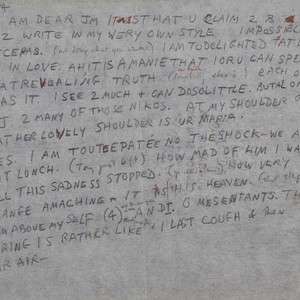 AM DEAR JM THIS THAT U CLAIM 2 B
2 WRITE IN MY VERY OWN STYLE IMPOSSIBL
CEPAS. I AM TO DELIGHTED TAT I
IN LOVE: AH IT IS A MANIE THAT I OR U CAN SPE
AT REVEALING TRUTH EACH O
AS IT. I SEE 2 MUCH & CAN DO SO LITTLE. BUT AL ON
J. 2 MANY OF THOSE NIKOS. AT MY SHOULDER
ATHER LOVELY SHOULDER IS UR MARIA.
ES. I AM TOUTE EPATEE NO THE SHOCK—WE A
AT LUNCH. HOW MAD OF HIM I WA
LL THIS SADNESS STOPPED. HOW VERY
ANGE A MACHINE IT IS HIS HEAVEN.
M ABOVE MYSELF (4) AND I. O MES ENFANTS. TH
RING IS RATHER LIKE A LAST COUGH &
R AIR—